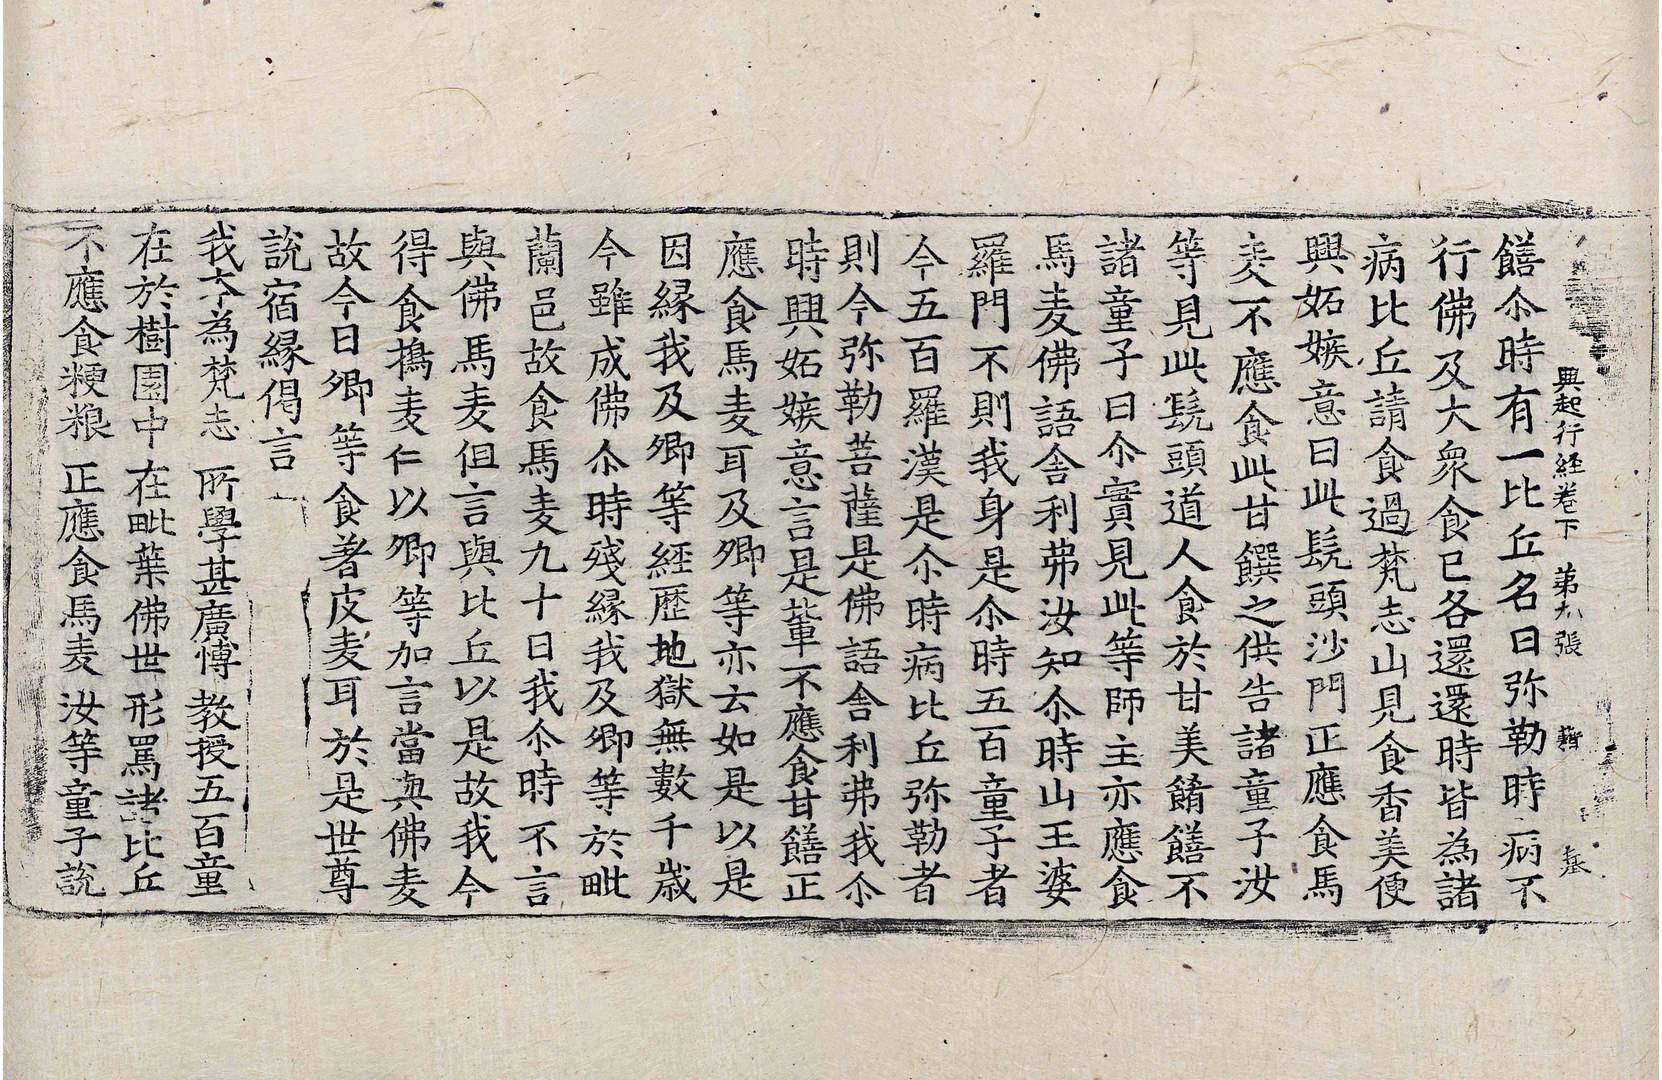 興起行經卷下　第九張　籍
饍尒時有一比丘名曰弥勒時病不
行佛及大衆食已各還還時皆為諸
病比丘請食過梵志山見食香美便
興妬嫉意曰此髡頭沙門正應食馬
麦不應食此甘饌之供告諸童子汝
等見此髡頭道人食於甘美餚饍不
諸童子曰尒實見此等師主亦應食
馬麦佛語舍利弗汝知尒時山王婆
羅門不則我身是尒時五百童子者
今五百羅漢是尒時病比丘弥勒者
則今弥勒菩薩是佛語舍利弗我尒
時興妬嫉意言是輩不應食甘饍正
應食馬麦耳及卿等亦云如是以是
因縁我及卿等經歷地獄無數千歲
今雖成佛尒時殘縁我及卿等於毗
蘭邑故食馬麦九十日我尒時不言
與佛馬麦但言與比丘以是故我今
得食搗麦仁以卿等加言當與佛麦
故今日卿等食著皮麦耳於是世尊
說宿縁偈言
我本為梵志　所學甚廣愽　教授五百童
在於樹園中　在毗葉佛世　形罵諸比丘
不應食粳粮　正應食馬麦　汝等童子說